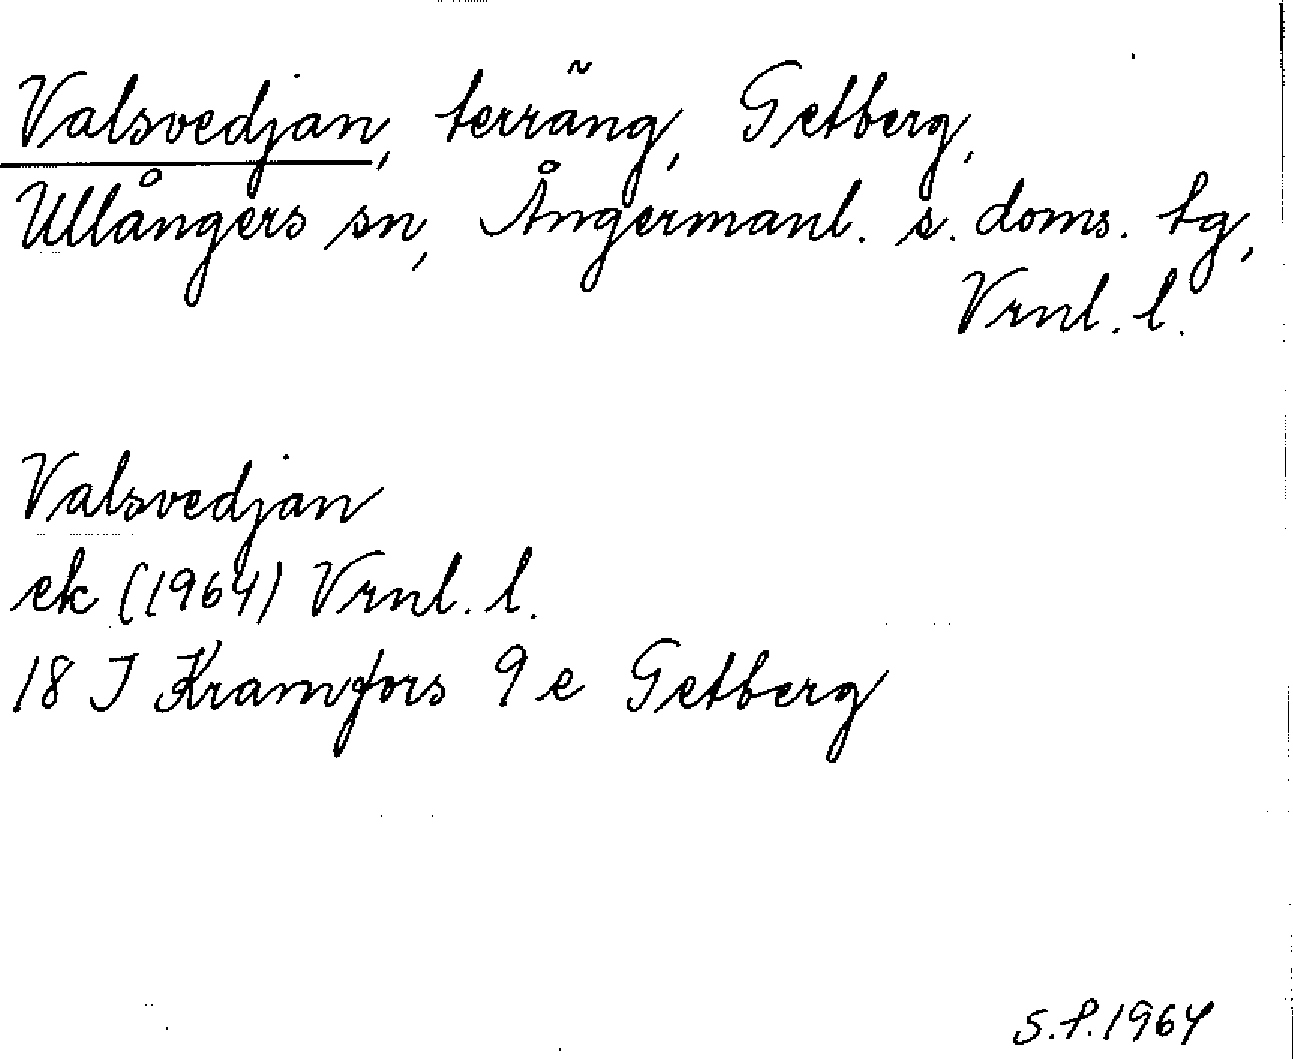 Valsvedjan, terräng, Getberg,
Ullångers sn, Ångermanl. s. doms. tg,
Vrnl. l.
Valsvedjan
ek (1964) Vrnl. l.
18 J Kramfors 9 e Getberg
S.P. 1964